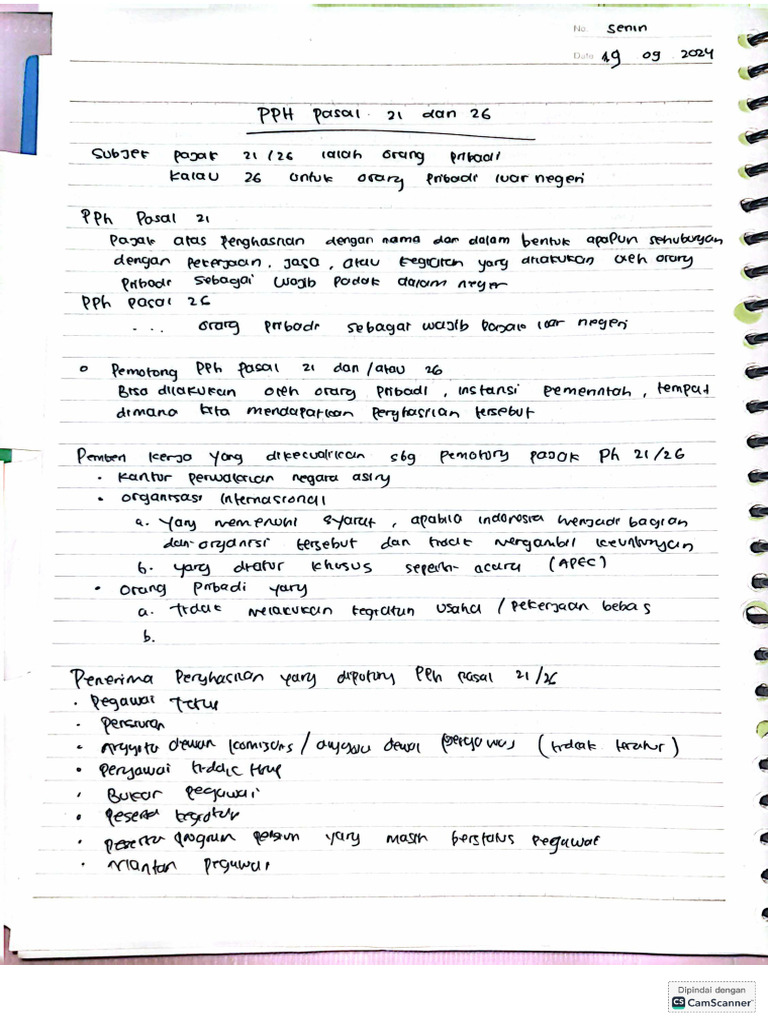 No. Senin
Date 19 09 2024
PPH Pasal 21 dan 26
Subjek pajak 21/26 ialah orang pribadi
Kalau 26 untuk orang pribadi luar negeri
PPh Pasal 21
Pajak atas penghasilan dengan nama dan dalam bentuk apapun sehubungan
dengan pekerjaan, jasa, atau kegiatan yang dilakukan oleh orang
pribadi sebagai wajib pajak dalam negeri
PPh pasal 26
... orang pribadi sebagai wajib luar negeri
Pemotong PPh pasal 21 dan/atau 26
Bisa dilakukan oleh orang pribadi, instansi pemerintah, tempat
dimana kita mendapatkan penghasilan tersebut
Pemberi kerja yang dikecualikan sbg pemotong pajak Ph 21/26
• Kantor perwakilan negara asing
• organisasi Internasional
a. Yang memenuhi syarat, apabila indonesia menjadi bagian
dan organisasi tersebut dan tidak mengambil keuntungan
b. yang diatur khusus seperti acara (APEC)
• Orang Pribadi yang
a. tidak melakukan kegiatan usaha / pekerjaan bebas
b.
Penerima Penghasilan yang dipotong PPh pasal 21/26
• Pegawai Tetap
• Pensiunan
• Anggota dewan komisaris / anggota dewan pengawas (tidak teratur)
• Pegawai tidak tetap
• Bukan pegawai
• Peserta kegiatan
• Peserta program pensiun yang masih berstatus pegawai
• Mantan pegawai
Dipindai dengan
CS CamScanner